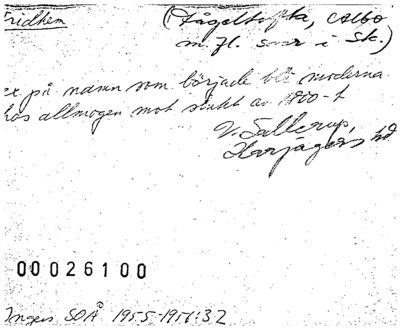 Fridhem
(Fågeltofta, Albo
m.fl. socr i Sk.)
ex på namn som började bli moderna
hos allmogen mot slutet av 1800-t
V. Sallerup,
Harjagers hd
00026100
Ingers SOÅ 1955-1957:32